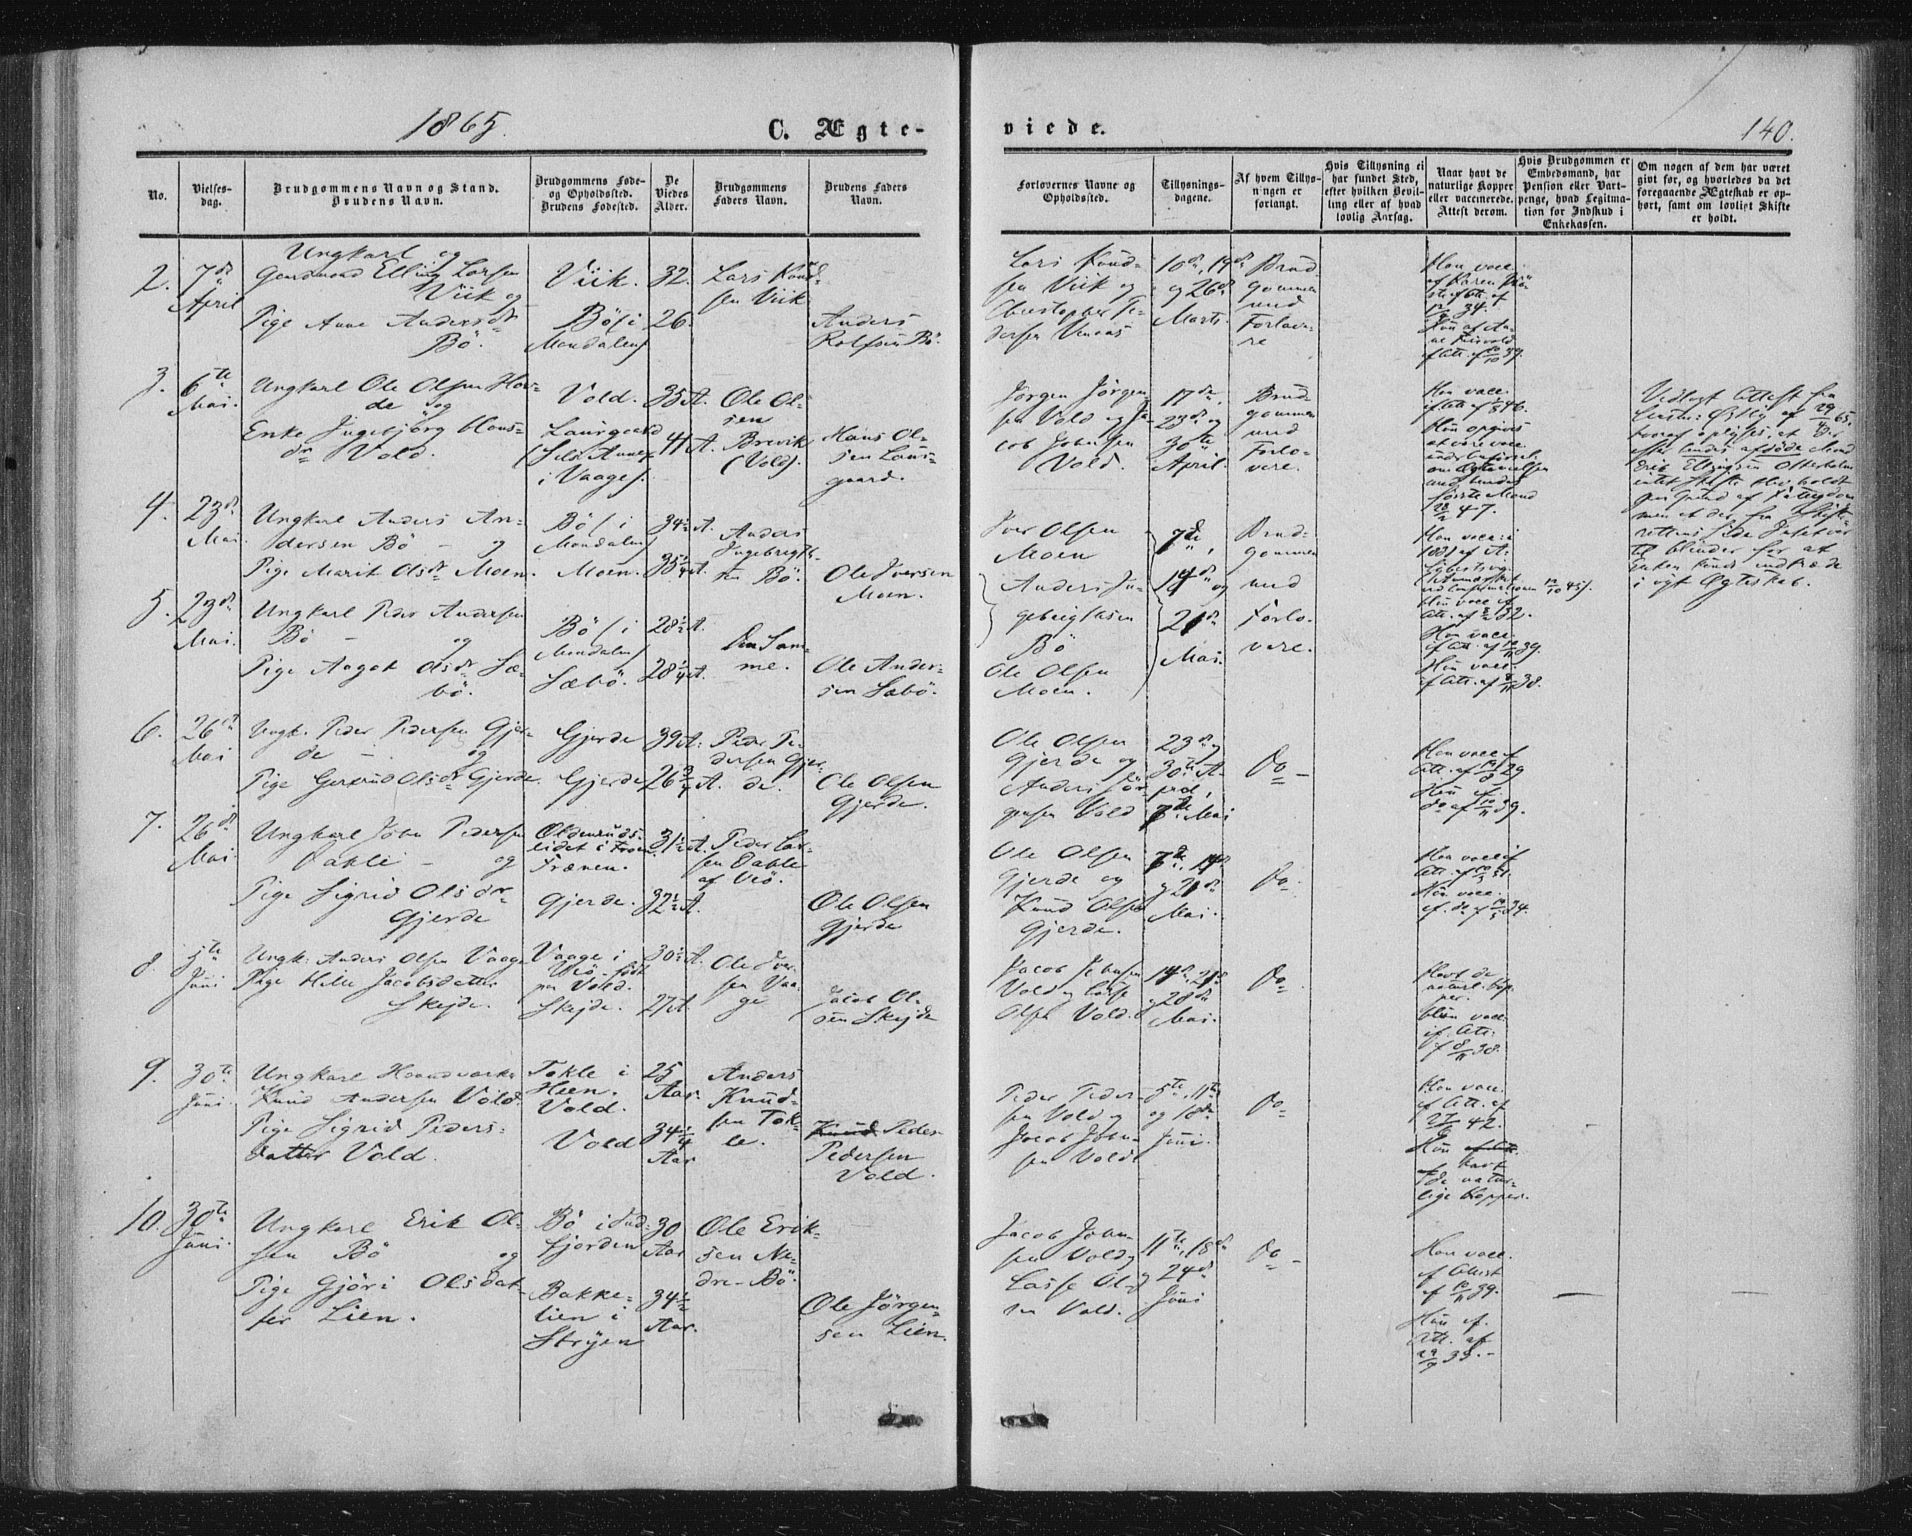 1865.
C. Ægte-
viede.
140.
No.
Vielses-
dag.
Brudgommens Navn og Stand.
Brudens Navn.
Brudgommens Føde-
og Opholdssted.
Brudens Fødested.
De
Viedes
Alder.
Brudgommens
Faders Navn.
Brudens Faders
Navn.
Forlovernes Navne og
Opholdssted.
Tillysnings-
dagene.
Af hvem Tillys-
ningen er
forlangt.
Hvis Tillysning ei
har fundet Sted,
efter hvilken Bevil-
ling eller af hvad
lovlig Aarsag.
Naar havt de
naturlige Kopper
eller vaccinerede.
Attest derom.
Hvis Brudgommen er
Embedsmand, har
Pension eller Vart-
penge, hvad Legitima-
tion for Indskud i
Enkekassen.
Om nogen af dem har været
givt før, og hvorledes da det
foregaaende Ægteskab er op-
hørt, samt om lovligt Skifte
er holdt.
2. 7de
April
Ungkarl og
Gaardmand Elling Larsen
Viik og
Pige Anne Andersdr
Bö.
Viik.
Bö i
Mondalen
32.
26.
Lars Knud-
sen Viik
Anders
Rolfsen Bö.
Lars Knud-
sen Viik og
Christopher Pe-
dersen
10de, 19de
og 26de
Marts.
Brud-
gommen
med
Forlove-
re
Han vacc.
34.
39.
3. 6te
Mai.
Ungkarl Ole Olsen Hov-
de og
Enke Ingebjörg Hans-
dr Vold.
Vold.
i Vaage
35 A.
41 A.
Ole Ol-
sen
Brevik
(Vold).
Hans Ol-
sen
gaard.
Jörgen Jörgen-
sen Vold og Ja-
cob Johnsen
Vold.
17de,
23de og
30te
April.
Brud-
gommen
med
Forlo-
vere.
Han vacc.
46.
Hun opgives
at være vacc.
første Mand
47.
Vedlagt Attest fra
65.
afdöde Mand
intet Skifte blev holdt
men at der fra Skifte-
rettens Side Intet var
til Hinder for at
Enken kunde indtræde
i nyt Ægteskab.
4. 23de
Mai.
Ungkarl Anders An-
dersen Bö - og
Pige Marit Olsdr Moen.
Bö i
Mondalen
Moen.
34½ A.
35¼ A.
Anders
Ingebrigt-
sen Bö.
Ole Iversen
Moen.
Iver Olsen
Moen
Anders In-
gebrigtsen
Bö
7de,
14de og
21de
Mai.
Brud-
gommen
med
Forlo-
vere.
Han vacc. i
1831
45.
Hun vacc. ef.
Att. af 32.
5. 23de
Mai.
Ungkarl Peder Andersen
Bö - og
Pige Aagot Olsdr Sæ-
bö.
Bö i
Mondalen
Sæbö.
28½ A.
28¼ A.
Den Sam-
me.
Ole Ander-
sen Sæbö.
Ole Olsen
Moen.
Han vacc.
ef. Att. af 39.
Hun vacc.
ef. Att. af 38.
6. 26de
Mai
Ungk. Peder Pedersen Gjer-
de - og
Pige Gertrud Olsdr Gjerde.
Gjerde
Gjerde
39 A.
26¾ A.
Peder Pe-
dersen Gjer-
de.
Ole Olsen
Gjerde.
Ole Olsen
Gjerde og
Anders Jör-
gensen Vold
23de og
30te A-
pril,
7de Mai
Do -
Han vacc. ef.
Att. af 29
Hun ef.
do af 39.
7. 26de
Mai.
Ungkarl John Pedersen
Dahle - og
Pige Sigrid Olsdr
Gjerde
Frænen.
Gjerde.
31½ A.
32½ A.
Peder Lar-
sen Dahle
af Veö.
Ole Olsen
Gjerde
Ole Olsen
Gjerde og
Knud Olsen
Gjerde.
7de, 14de
og 21de
Mai.
Do.
Han vacc. ef.
Att. af
Hun vacc.
ef. do af 34.
8. 5te
Juni
Ungk. Anders Olsen Vaage
Pige Jacobsdatter
Skejde.
Vaage i
Veö - født
paa Vold.
Skejde.
30½ A.
27 A.
Ole Iver-
sen Vaa-
ge
Jacob Ol-
sen Skejde
Jacob Johnsen
Vold og Lasse
Olsen Vold.
14de, 21de
og 28de
Mai.
Do
Havt de
naturl. Kop-
per.
Hun vacc.
ef. Att.
af 38.
9. 30te
Juni
Ungkarl Haandværker
Knud Andersen Vold.
Pige Sigrid Peders-
datter Vold.
Tokle i
Heen.
Vold.
Vold
25
Aar.
34¼
Aar
Anders
Knud-
sen Tok-
le.
Knud Peder
Pedersen
Vold.
Peder Peder-
sen Vold og
Jacob John-
sen Vold
5te, 11te
og 18de
Juni.
Do
Han vacc.
ef. Att. af
42.
Hun
havt
de natur-
lige Kopper.
10. 30te
Juni.
Ungkarl Erik Ol-
sen Bö og
Pige Gjöri Olsdat-
ter Lien.
Bö i Ind-
fjorden
Bakke-
lien i
Stryen
30
Aar
34½
Aar.
Ole Erik-
sen Ne-
dre-Bö.
Ole Jörgen-
sen Lien.
Jacob John-
sen Vold og
Lasse Ol-
sen Vold.
11te, 18de
og 24de
Juni
Do -
Han vacc.
ef Attest
af 39.
Hun ef.
Att. af
33. -